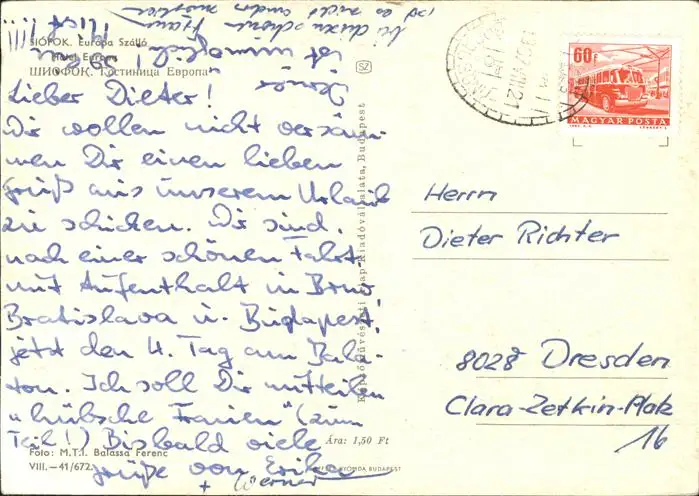 SIÓFOK. Európa Szálló
Hotel Europa
ШИОФОК. Гостиница Европа
SZ
Lieber Dieter!
Wir wollen nicht versäu-
men Dir einen lieben
Gruß aus unserem Urlaub
zu schicken. Wir sind,
nach einer schönen Fahrt
mit Aufenthalt in Brno
Bratislava u. Budapest!
jetzt den 4. Tag am Bala-
ton. Ich soll Dir mitteilen
"hübsche Frauen" (zum
Teil!) Bis bald viele
Grüße von Erika
+ Werner
Foto: M.T.I. Balassa Ferenc
VIII.—41/672.
Ára: 1,50 Ft
Képzőművészeti Alap Kiadóvállalata, Budapest
NYOMDA, BUDAPEST
60f
MAGYAR POSTA
Herrn
Dieter Richter
8028 Dresden
Clara-Zetkin-Platz
16